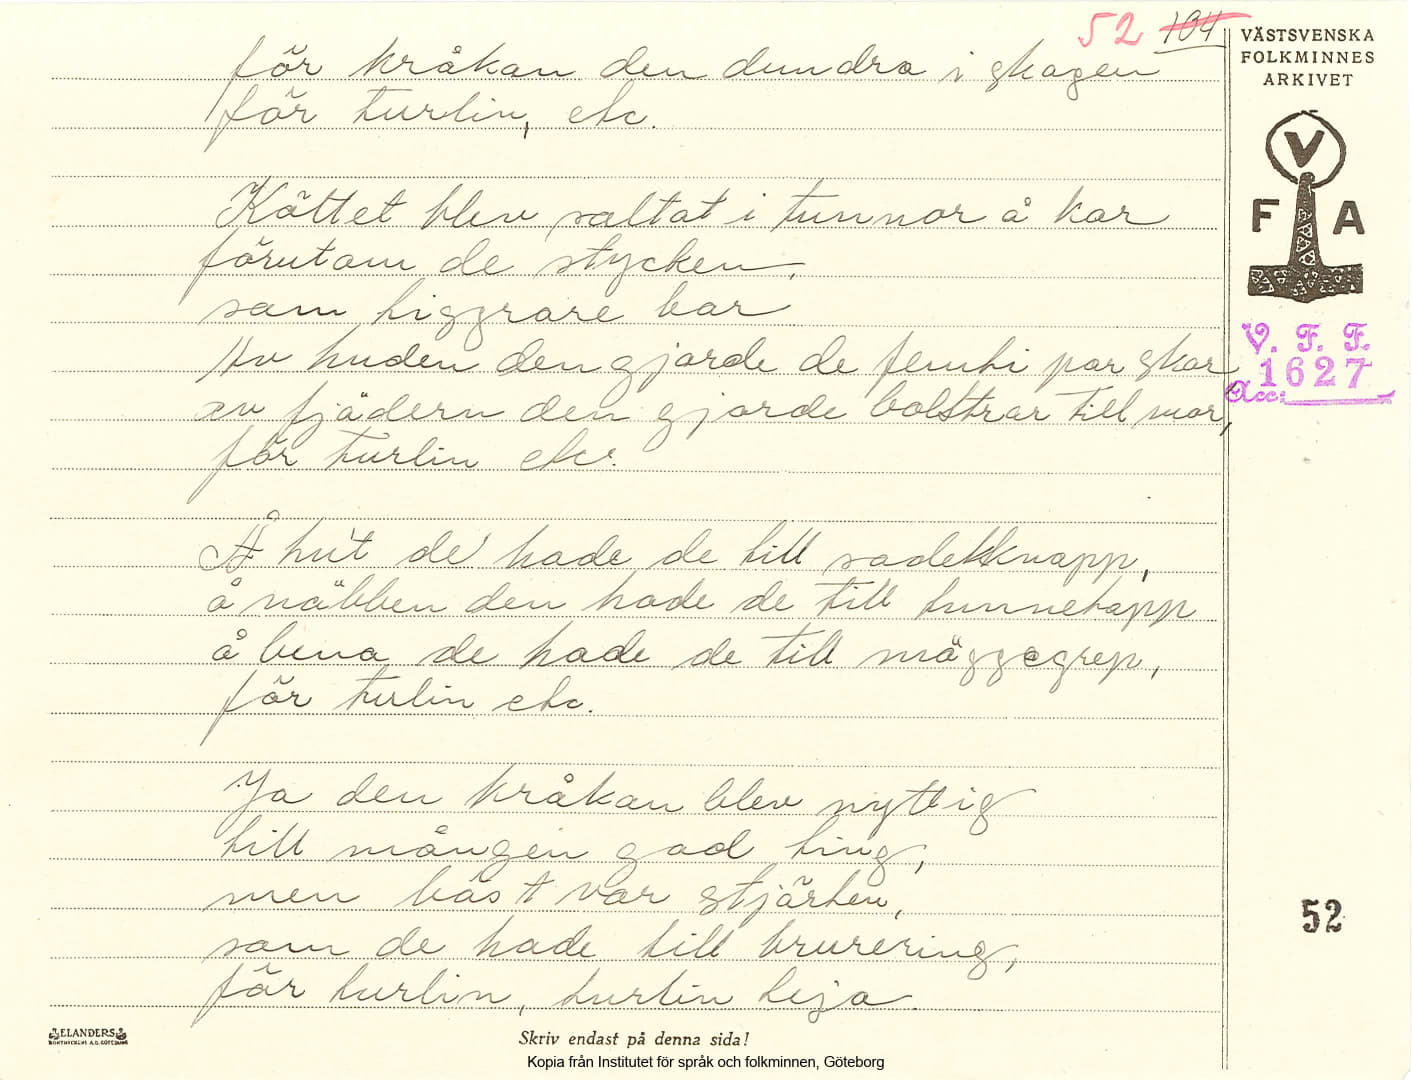 52 104
för kråkan den dundra i skogen
för turlin, etc.
Köttet blev saltat i tunnor å kar
förutom de stycken,
som tiggrare bar
Av huden den gjorde de femti par skor
av fjädern den gjorde bolstrar till mor,
för turlin etc.
Å hu't de' hade de till sadelknapp,
å näbben den hade de till tunnetapp
å bena de hade de till möggegrep,
för turlin etc.
Ja den kråkan blev nyttig
till mången god ting,
men bäst var stjärten,
som de hade till brurering,
för turlin, turlin leja.
VÄSTSVENSKA
FOLKMINNES
ARKIVET
V
F A
V. F. F.
1627
Acc:
52
ELANDERS
BOKTRYCKERI A.B. GÖTEBORG
Skriv endast på denna sida!
Kopia från Institutet för språk och folkminnen, Göteborg